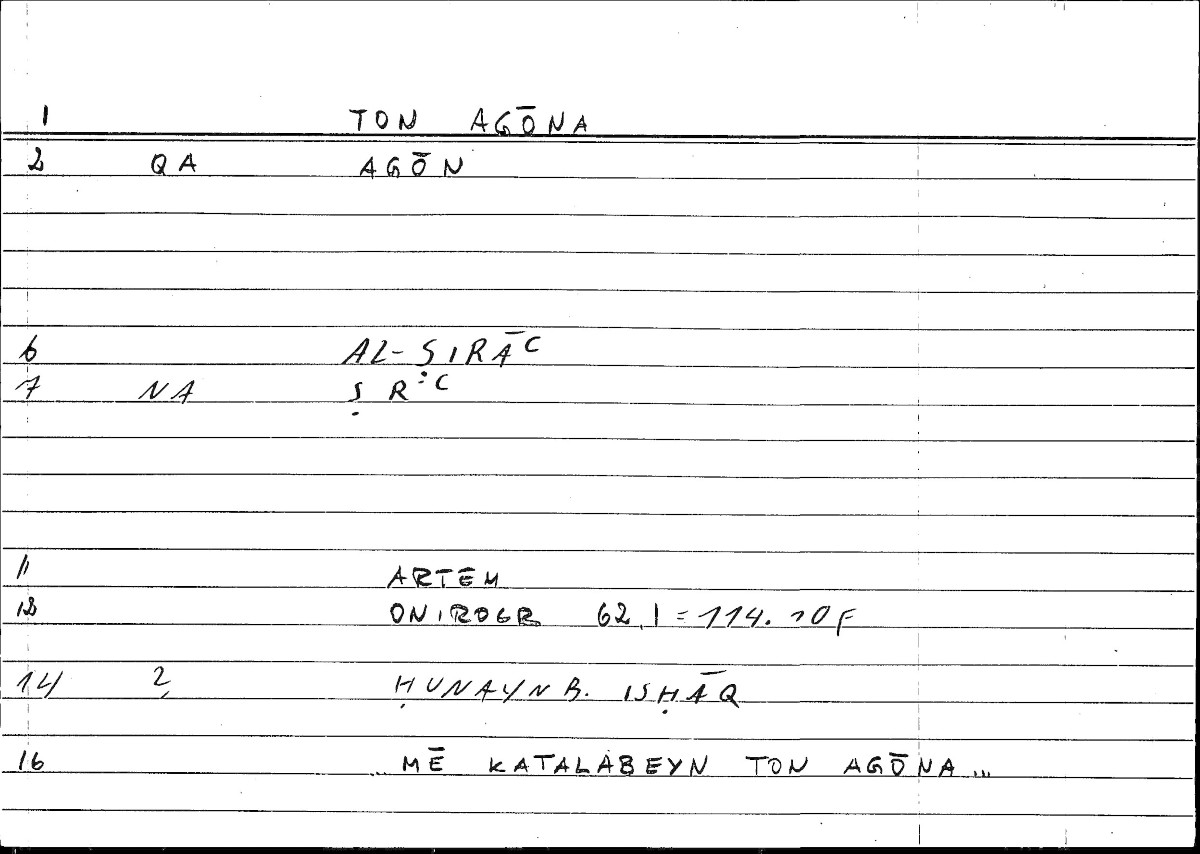 1 TON AGŌNA
2 QA AGŌN
6 AL-ṢIRĀC
7 NA Ṣ R:C
11 ARTĒM
12 ONIROGR 62,1 = 114.10F
14 2, ḤUNAYN B. ISḤĀQ
16 ... MĒ KATALABEYN TON AGŌNA ...